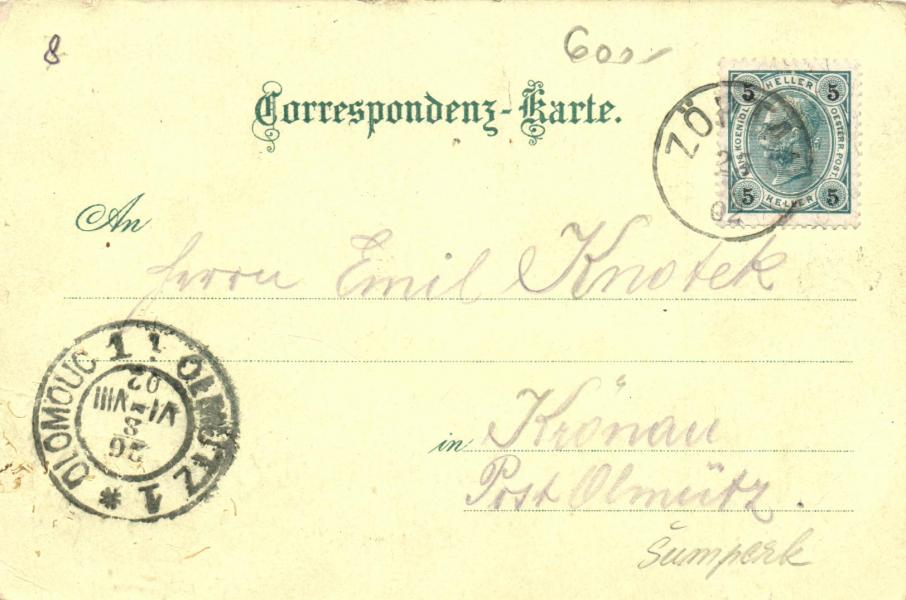 8
600,-
Correspondenz-Karte.
5 HELLER 5
KAIS. KOENIGL. OESTERR. POST.
5 HELLER 5
ZÖ
02
An
Herrn Emil Knotek
OLOMOUC 1 OLMÜTZ 1 *
02
VI-VIII
8
26
in Krönau
Post Olmütz.
Šumperk